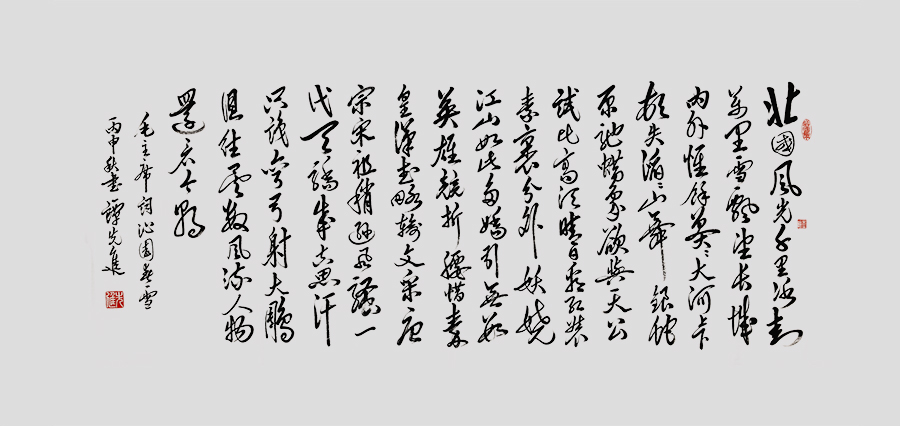 北國風光千里冰封
萬里雪飄望長城
内外惟餘莽〻大河上下
頓失滔〻山舞銀蛇
原馳蠟象欲與天公
試比高須晴日看紅裝
素裹分外妖嬈
江山如此多嬌引無數
英雄競折腰惜秦
皇漢武略輸文采唐
宗宋祖稍遜風騷一
代天驕成吉思汗
只識彎弓射大鵰
俱往矣數風流人物
還看今朝
毛主席詞沁園春雪
丙申秋書譚先進